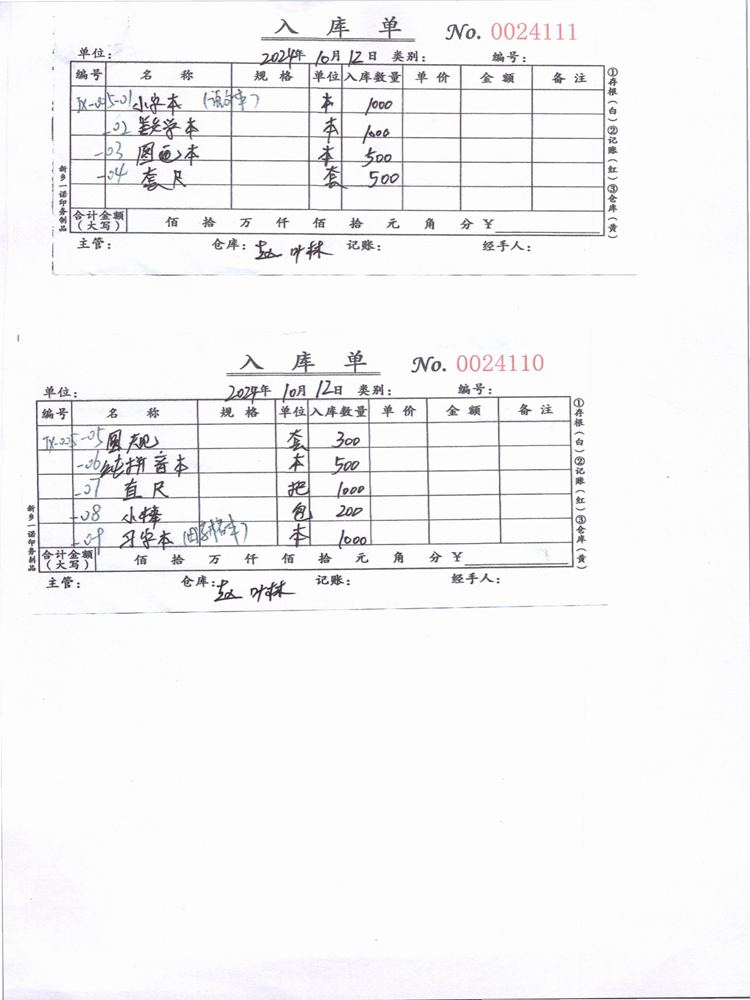 入 库 单 No. 0024111
单位： 2024年 10月 12日 类别： 编号：
编号 名 称 规 格 单位 入库数量 单 价 金 额 备 注
JX-005-01 小字本 (语文本) 本 1000
-02 数学本 本 1000
-03 图画本 本 500
-04 套尺 套 500
合计金额（大写） 佰 拾 万 仟 佰 拾 元 角 分 ¥
主管： 仓库：赵叶林 记账： 经手人：
新乡一诺印务制品
①存根（白）②记账（红）③仓库（黄）
入 库 单 No. 0024110
单位： 2024年 10月 12日 类别： 编号：
编号 名 称 规 格 单位 入库数量 单 价 金 额 备 注
JX-005-05 圆规 套 300
-06 拼音本 本 500
-07 直尺 把 1000
-08 小棒 包 200
-09 习字本 (田字格本) 本 1000
合计金额（大写） 佰 拾 万 仟 佰 拾 元 角 分 ¥
主管： 仓库：赵叶林 记账： 经手人：
新乡一诺印务制品
①存根（白）②记账（红）③仓库（黄）